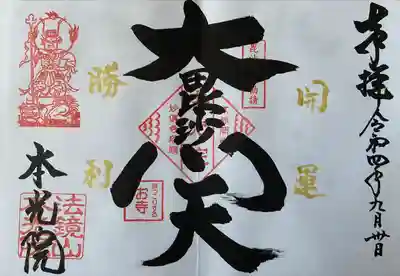 奉拝 令和四年九月卅日
開運
大毘沙門天
勝利
お寺
本光院
法鏡山